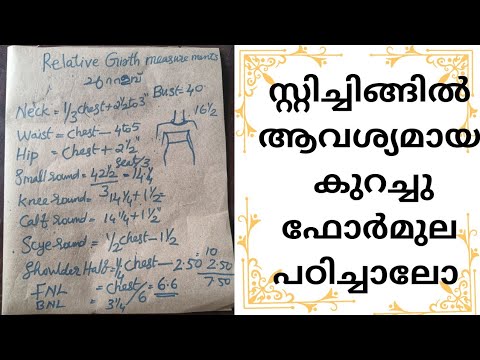 Relative Girth measurements
Bust=40
Neck = 1/3 chest + 2 1/2 to 3"
16 1/2
Waist = Chest - 4 to 5
Hip = Chest + 2 1/2"
Seat/3
Small round = 42 1/2 / 3 = 14 1/4
Knee round = 14 1/4 + 1 1/2"
Calf round = 14 1/4 + 1 1/2
Scye round = 1/2 chest - 1 1/2
Shoulder Half = 1/4 chest - 2.50
= 10
2.50
7.50
FNL = chest/6 = 6.6
BNL = 3 1/4
സ്റ്റിച്ചിങ്ങിൽ
ആവശ്യമായ
കുറച്ചു
ഫോർമുല
പഠിച്ചാലോ